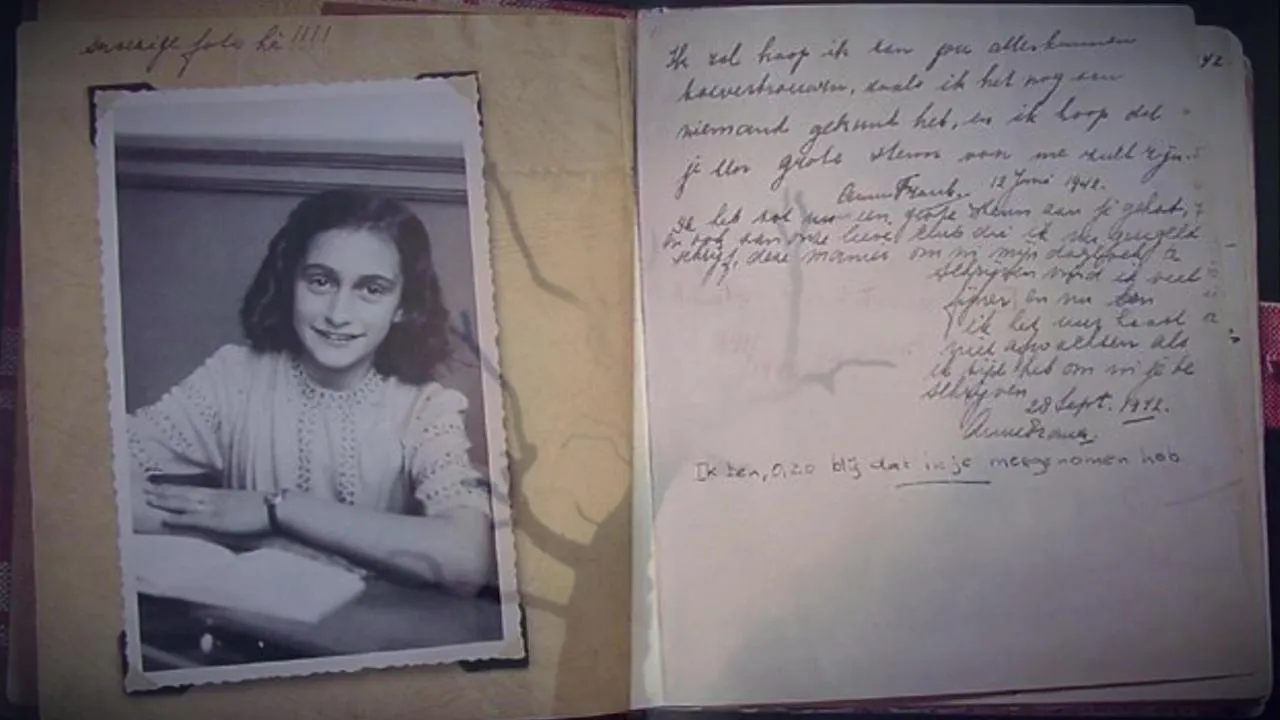 snoezige foto hè!!!!
Ik zal hoop ik aan jou alles kunnen
toevertrouwen, zoals ik het nog aan
niemand gekund heb, en ik hoop dat
je een grote steun van me zult zijn.
Anne Frank. 12 Juni 1942.
Ik heb tot nu een grote steun aan je gehad,
en ook aan onze lieve club die ik nu geregeld
schrijf, deze manier om in mijn dagboek
schrijven vind ik veel
fijner en nu kan
ik het uur haast
niet afwachten als
ik tijd heb om in je te
schrijven
28 Sept. 1942.
Anne Frank.
Ik ben, o, zo blij dat ik je meegenomen heb